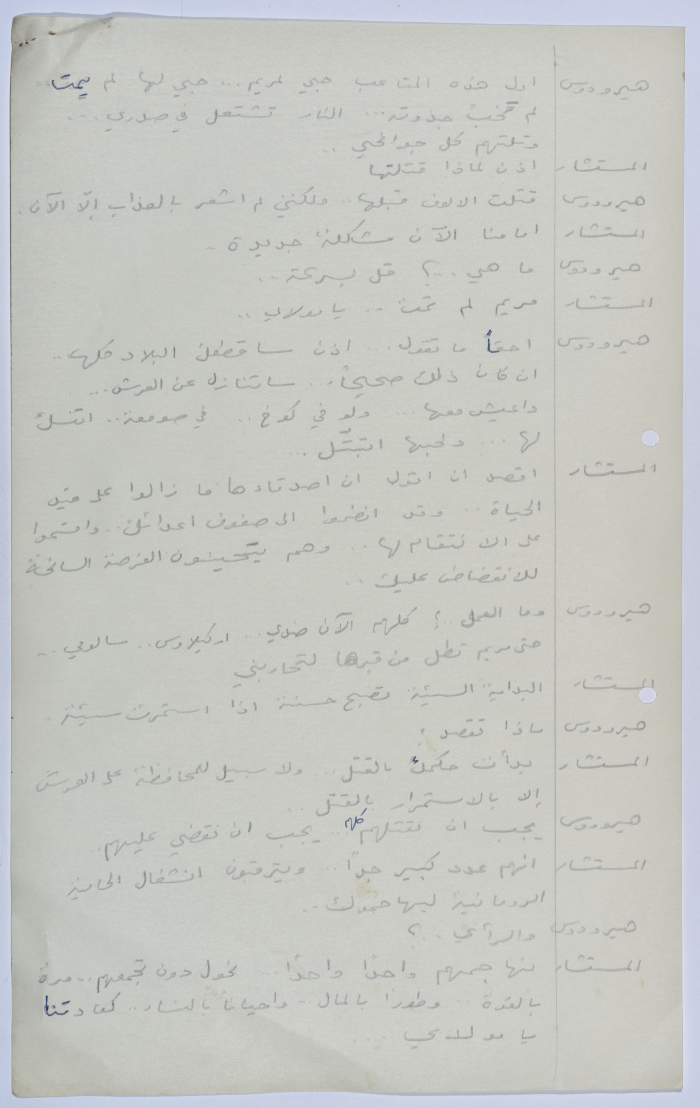 هيرودوس اول هذه المتاعب حبي لمريم... حبي لها لم يمت..
لم تخب جذوته... النار تشتعل في صدري...
وتلتهم كل جوانحي..
المستشار اذن لماذا قتلتها
هيرودوس قتلت الالوف قبلها.. ولكنني لم اشعر بالعذاب إلّا الآن.
المستشار امامنا الآن مشكلة جديدة..
هيرودوس ما هي..؟ قل بسرعة..
المستشار مريم لم تمت.. يا مولاي..
هيرودوس احقاً ما تقول... اذن ساقطعك البلاد كلها..
ان كان ذلك صحيحاً.. ساتنازل عن العرش...
واعيش معها... ولو في كوخ.. في صومعة.. اتنسك
لها... ولحبها اتبتّل..
المستشار اقصد ان اقول ان اصدقاءها ما زالوا على قيد
الحياة.. وقد انضموا الى صفوف اعدائك.. واقسموا
على الانتقام لها.. وهم يتحينون الفرصة السانحة
للانقضاض عليك..
هيرودوس وما العمل.؟ كلهم الآن ضدي.. اركيلاوس.. سالومي..
حتى مريم تطل من قبرها لتحاربني
المستشار البداية السيئة تصبح حسنة اذا استمرت سيئة..
هيرودوس ماذا تقصد؟
المستشار بدأت حكمك بالقتل... ولا سبيل للمحافظة على العرش
إلا بالاستمرار بالقتل..
هيرودوس يجب ان نقتلهم كلهم.. يجب ان نقضي عليهم..
المستشار انهم عدد كبير جداً... ويترقبون انشغال الحامية
الرومانية ليهاجموك..
هيرودوس والرأي..؟
المستشار نهاجمهم واحدًا واحدًا... نحول دون تجمعهم.. مرة
بالقوة.. وطورًا بالمال.. واحيانًا بالنساء.. كعادتنا
يا مولاي....